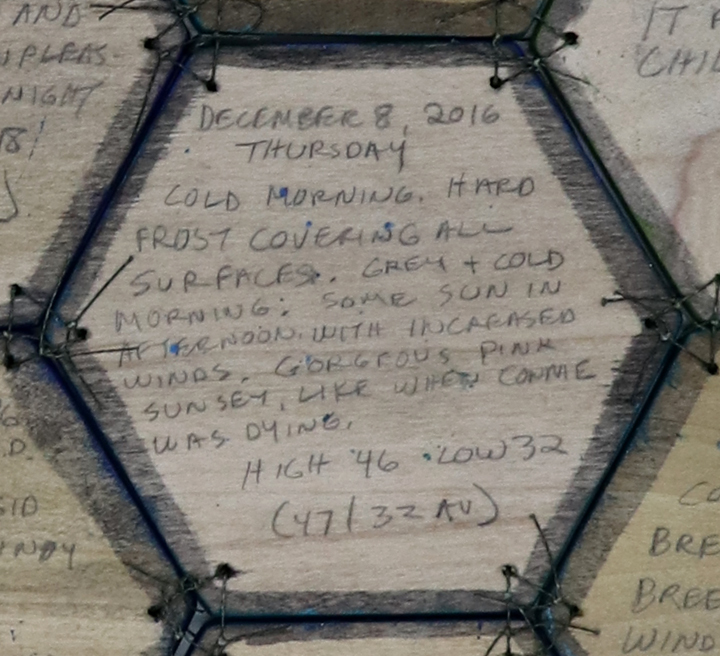 AND
NIGHT
IT
DECEMBER 8, 2016
THURSDAY
COLD MORNING. HARD
FROST COVERING ALL
SURFACES. GREY + COLD
MORNING; SOME SUN IN
AFTERNOON WITH INCREASED
WINDS. GORGEOUS PINK
SUNSET, LIKE WHEN CONNIE
WAS DYING.
HIGH 46 LOW 32
(47/32 AV)
WIND